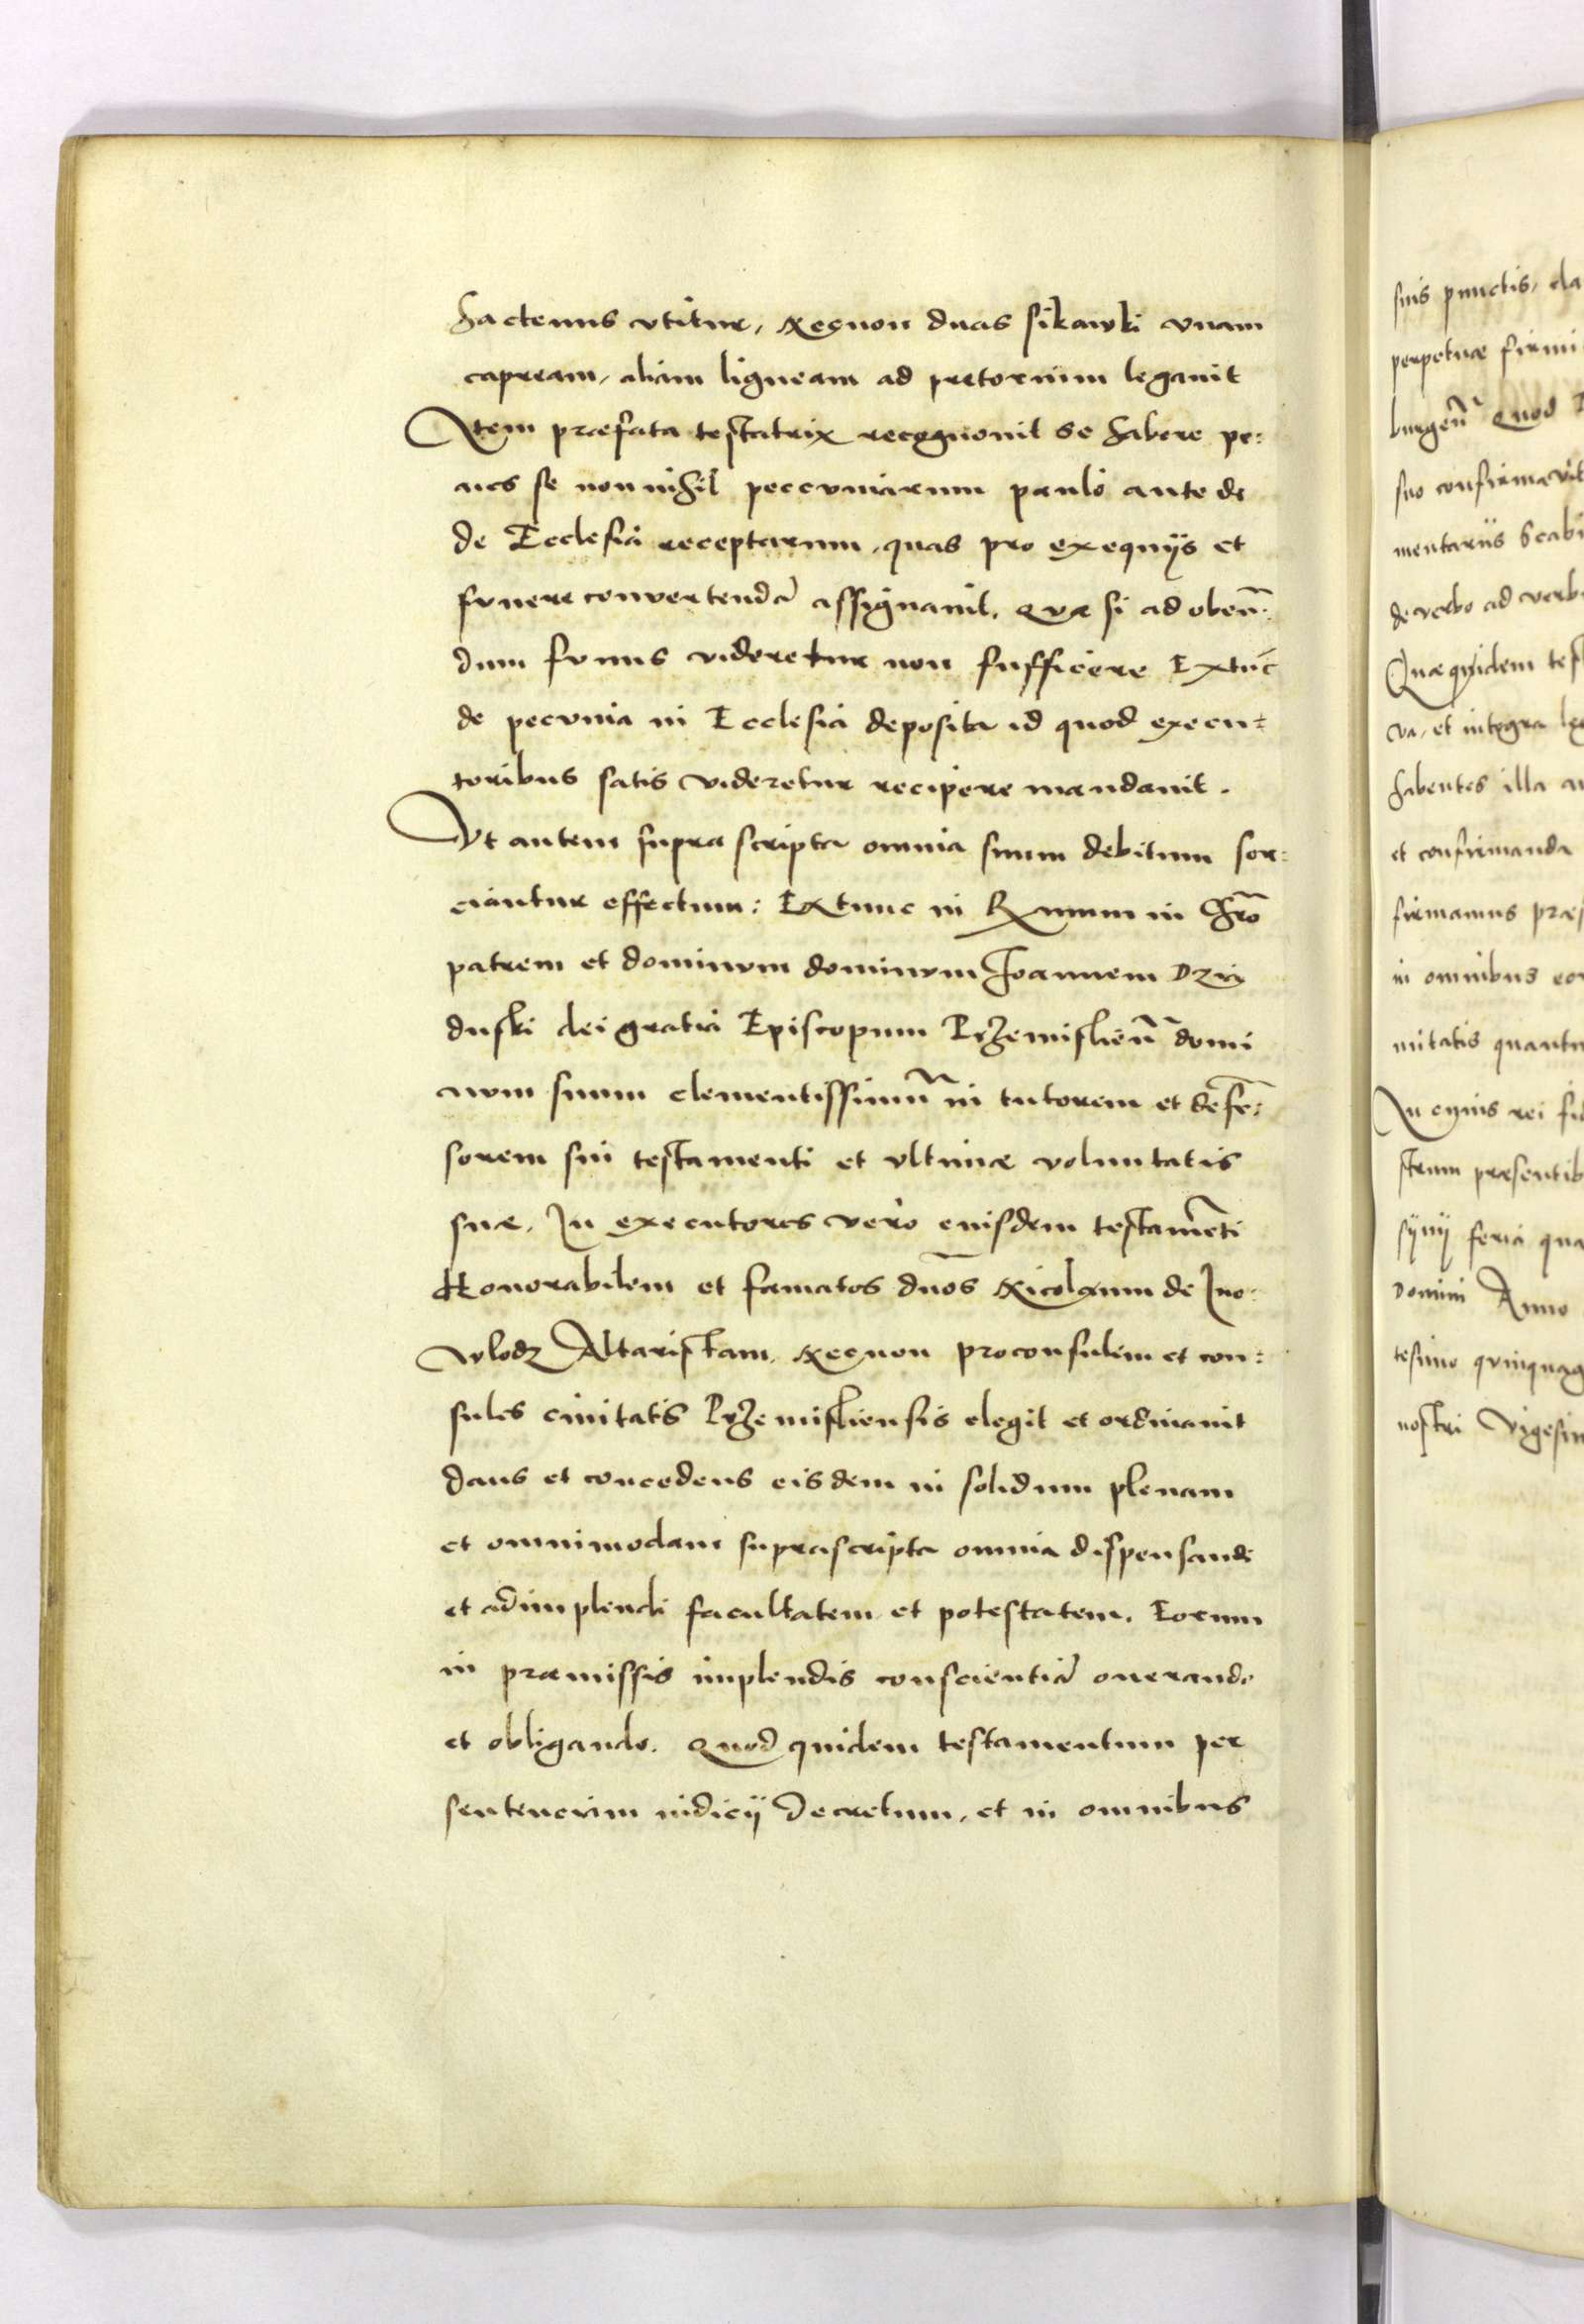 hactenus vtitur, Necnon duas sikawki vnam
cupream, aliam ligneam ad pretorium legauit
Item præfata testatrix recognouit se habere pe:
nes se nonnihil peccvniarum paulo ante de
de Ecclesia receptarum, quas pro exequijs et
fvnere convertenda assignauit. Quæ si ad obeũ:
dum fvnus videretur non sufficere Extũc
de pecvnia in Ecclesia deposita id quod execu:
toribus satis videretur recipere mandauit.
Vt autem supra scripta omnia suum debitum sor:
ciantur effectum: Extunc in Rmum in Chrõ
patrem et dominvm dominvm Joannem Dzia
duski dei gratia Episcopum Przemislieñ domi
nvm suum clementissimũ in tutorem et defẽ:
sorem sui testamenti et vltimæ voluntatis
suæ. In executores vero euisdem testamẽti
Honorabilem et famatos dños Nicolaum de Ino:
wlodz Altaristam, Necnon proconsulem et con:
sules ciuitatis Przemisliensis elegit et ordinauit
dans et concedens eisdem in solidum plenam
et omnimodam suprascripta omnia dispensandi
et adimplendi facultatem et potestatem. Eorum
in præmissis implendis conscientiã onerando
et obligando. Quod quidem testamentum per
sentenciam iudicij decretum, et in omnibus
suis punctis, cla
perpetuæ firmi
burgeñ Quod
suo confirmavit
mentariis Scabi
de verbo ad verb
Quæquidem tes
va, et integra le
habentes illa au
et confirmanda
firmamus præ
in omnibus eor
mitatis quantu
In cuius rei fid
strum presentib
feria qua
Domini Anno
tesimo qvinquag
nostri Vigesim